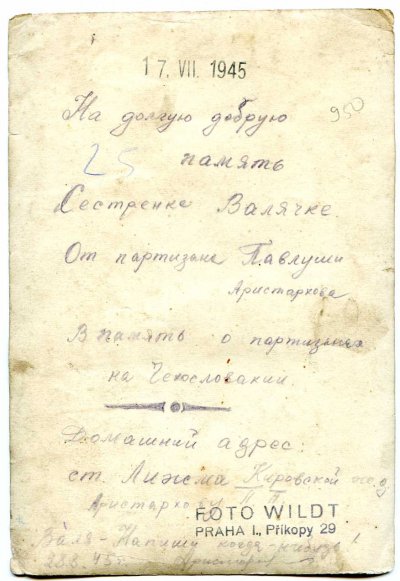 17. VII. 1945
950
На долгую добрую
25
память
Сестренке Валячке
От партизана Павлуши
Аристархова
В память о партизанах
на Чехословакии
Домашний адрес
ст. Лижма Кировской ж. д
Аристархову П
FOTO WILDT
PRAHA I., Příkopy 29
Валя - Напиши когда-нибудь!